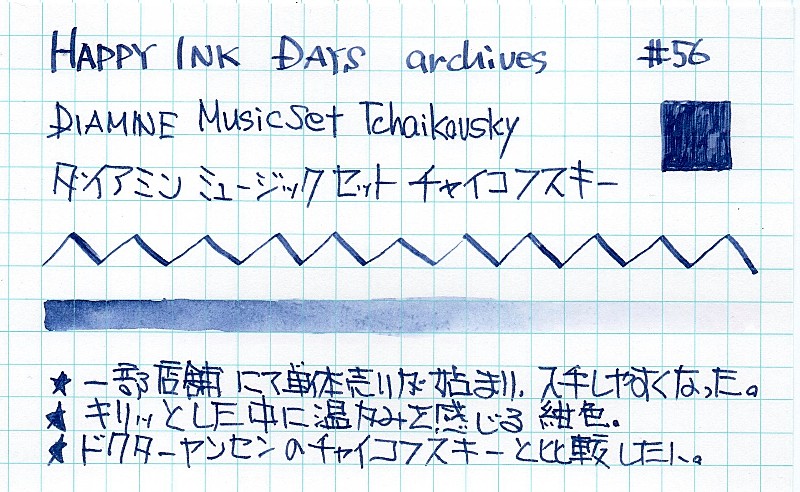 HAPPY INK DAYS archives #56
DIAMINE MusicSet Tchaikovsky
ダイアミン ミュージックセット チャイコフスキー
★ 一部店舗にて単体売りが始まり、入手しやすくなった。
★ キリッとした中に温かみを感じる紺色。
★ ドクターヤンセンのチャイコフスキーと比較したい。